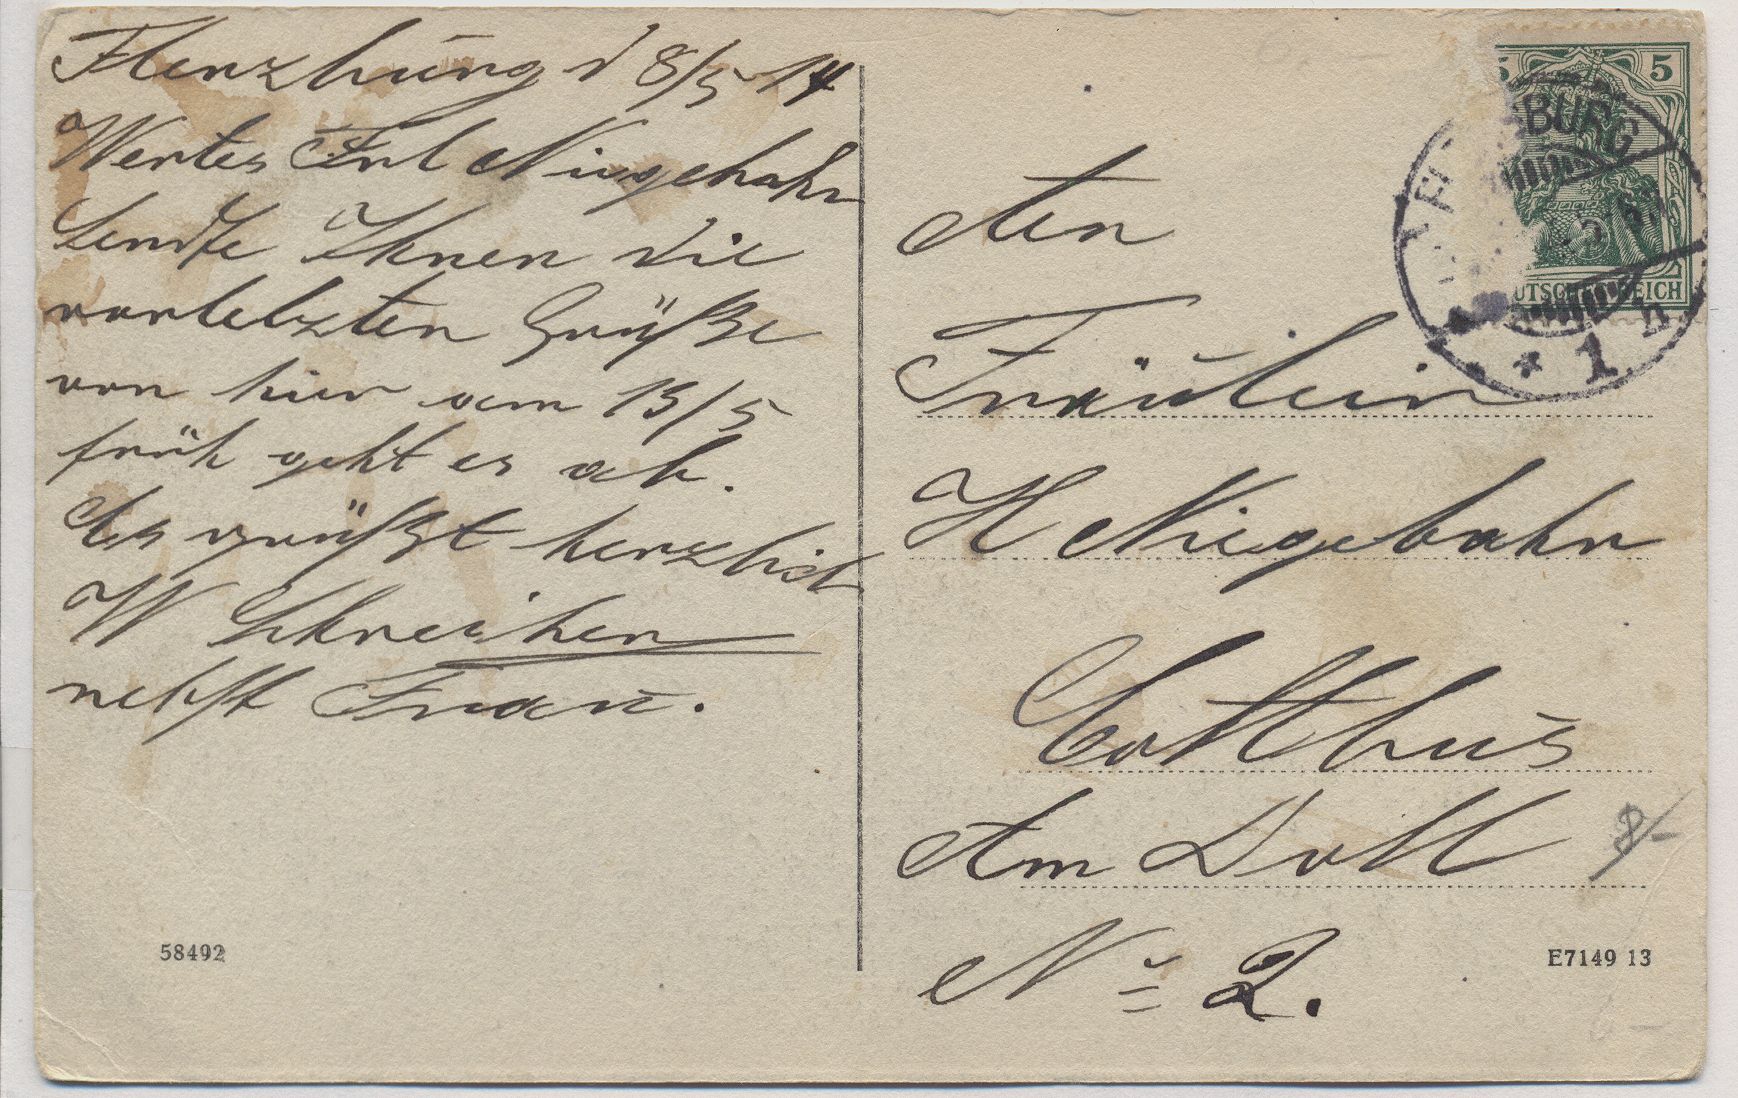 Flensburg d 8/5 14
Wertes Frl Niegebahr
Sende Ihnen die
vorletzten Grüße
von hier am 13/5
früh geht es ab.
Es grüßt herzlich
W Schreiber
nebst Frau.
58492
5 5
BURG
DEUTSCHES REICH
* 1 *
An
Fräulein
H Niegebahr
Cottbus
Am Doll
No 2.
E7149 13